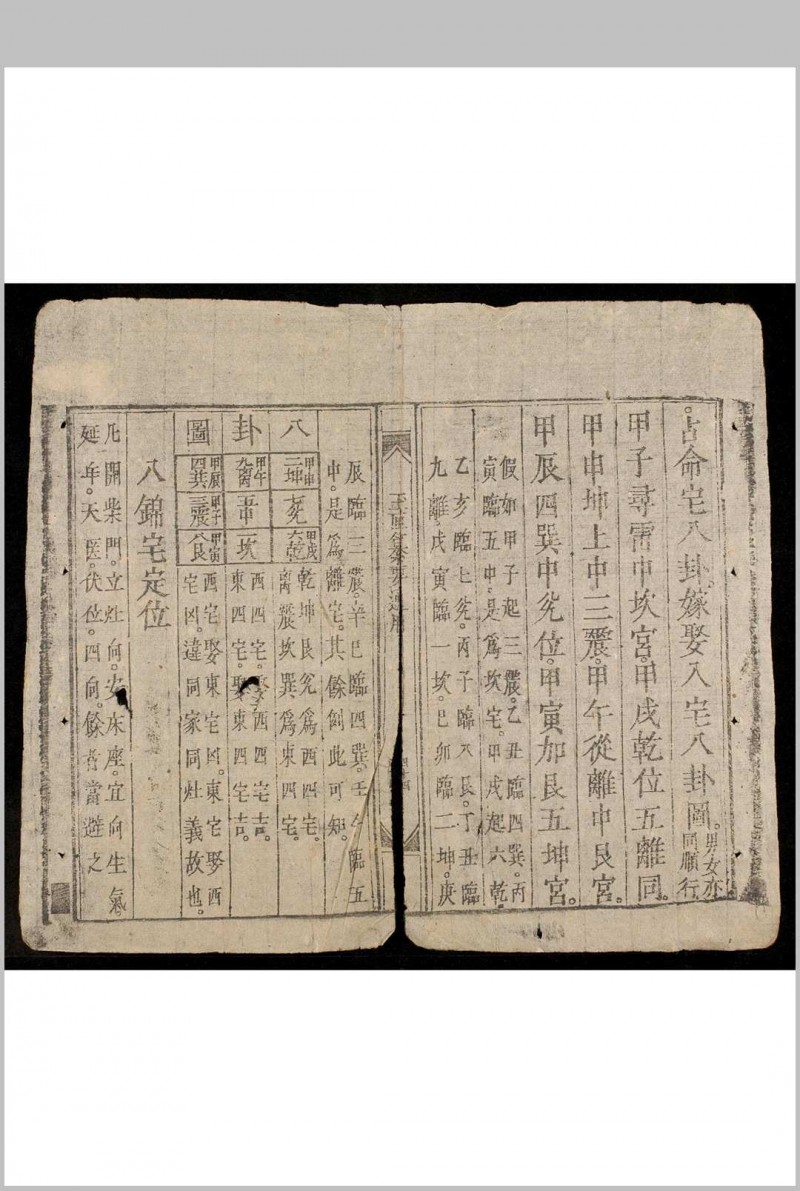 占命宅八卦嫁娶入宅八卦圖。男女亦同順行
甲子尋雷中坎宮。甲戌乾位五離同。
甲申坤上中三震。甲午從離中艮宮。
甲辰四巽中兊位。甲寅加艮五坤宮。
假如甲子起三震。乙丑臨四巽。丙
寅臨五中。是爲坎宅。甲戌起六乾
乙亥臨七兊。丙子臨八艮。丁丑臨
九離。戊寅臨一坎。己卯臨二坤。庚
辰臨三震。辛巳臨四巽。壬午臨五
中。是爲離宅。其餘倣此可知。
八卦圖
甲申二坤
七兊
甲戌六乾
甲午九離
五中
一坎
甲辰四巽
甲子三震
甲寅八艮
乾坤艮兊爲西四宅。
離震坎巽爲東四宅。
西四宅。娶西四宅吉。
東四宅。娶東四宅吉。
西宅娶東宅凶。東宅娶西
宅凶。違同家同灶義故也。
八錦宅定位
凡開柴門。立灶向。安床座。宜向生氣
延年。天医。伏位。四向。餘者當避之